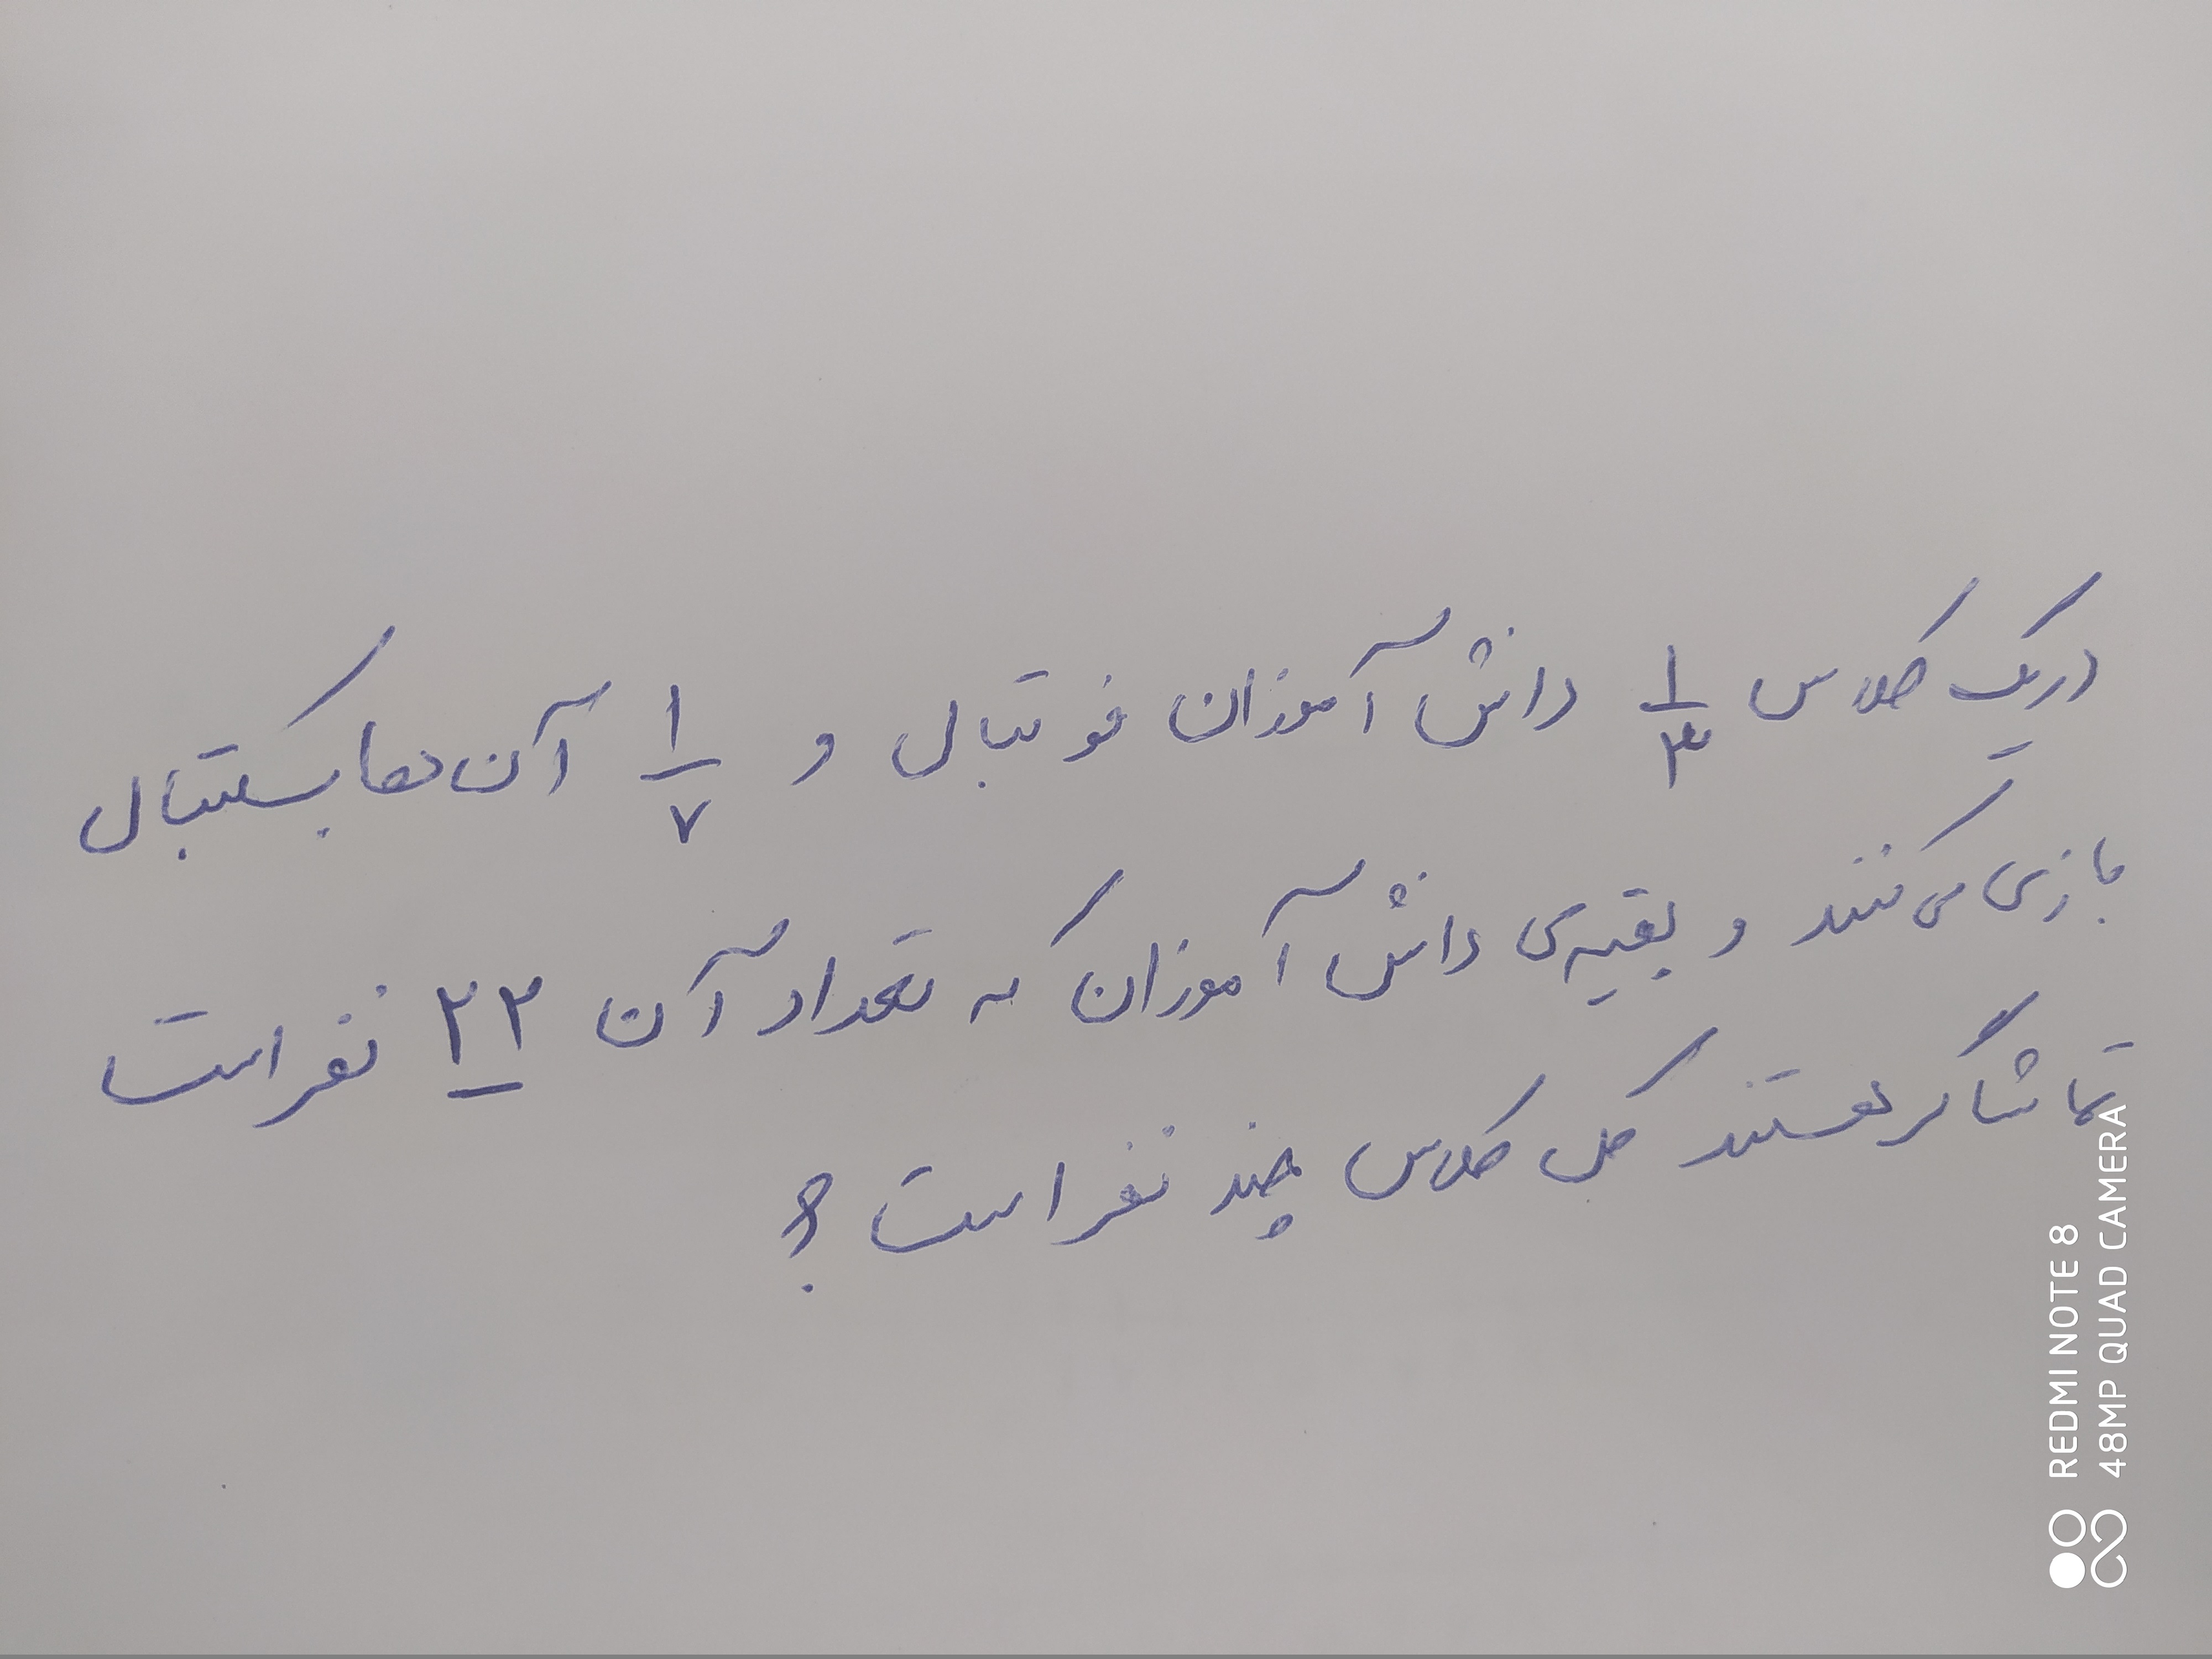 در یک کلاس ۱/۳ دانش آموزان فوتبال و ۱/۷ آن ها بسکتبال
بازی می کنند و بقیه ی دانش آموزان که تعداد آن ۲۲ نفر است
تماشاگر هستند کل کلاس چند نفر است ؟
REDMI NOTE 8
48MP QUAD CAMERA